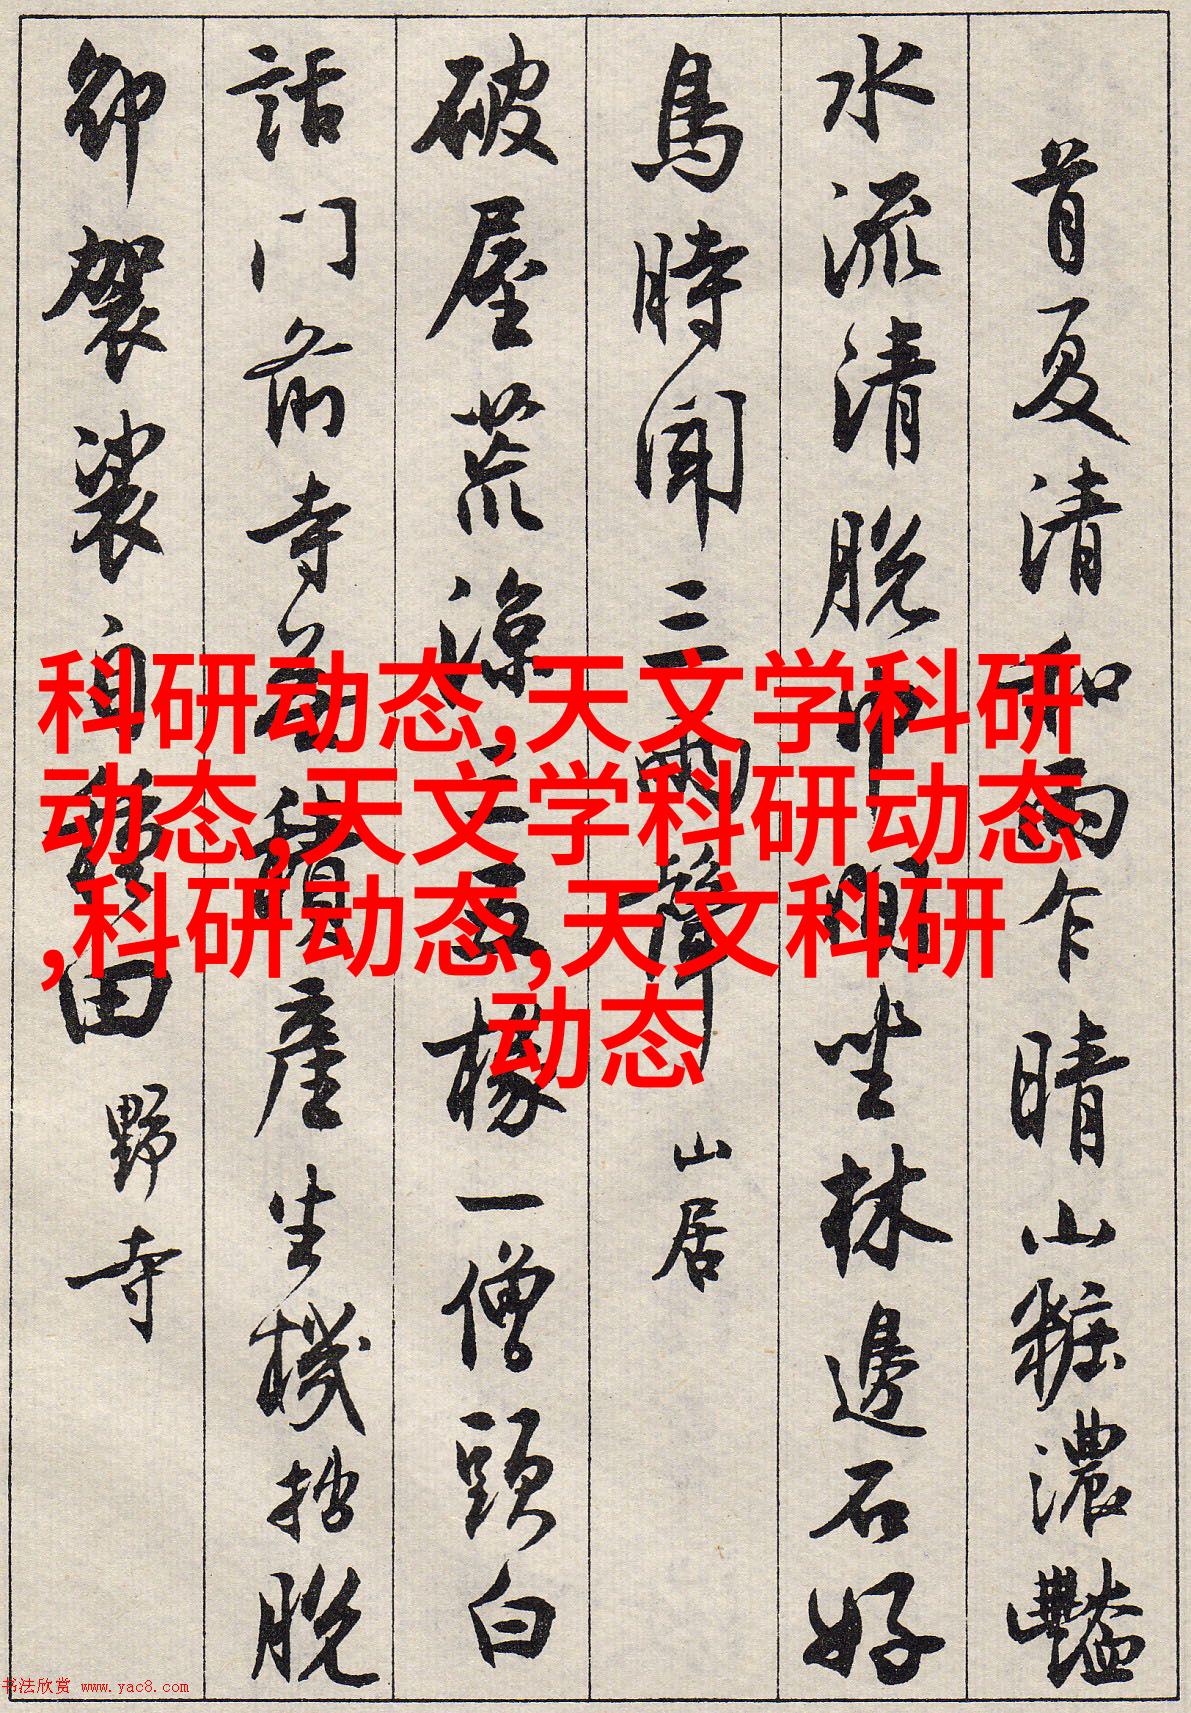 首夏清和雨乍晴山粧濃豔
水流清脱巾明坐林邊石好
鳥時聞三兩聲
山居
破屋荒涼三五椽一僧頭白
話門前寺無積產生機拙脱
卻袈裟自種田
野寺
科研动态,天文学科研
动态,天文学科研动态
,科研动态,天文科研
动态
书法欣赏 www.yac8.com